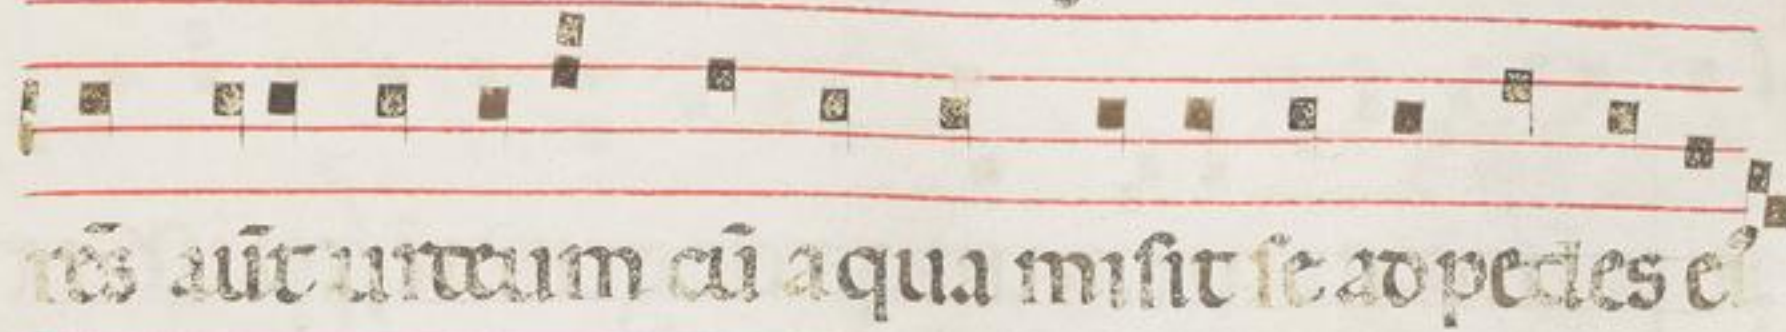 rēs aūt urceum cū aqua misit se ad pedes ei